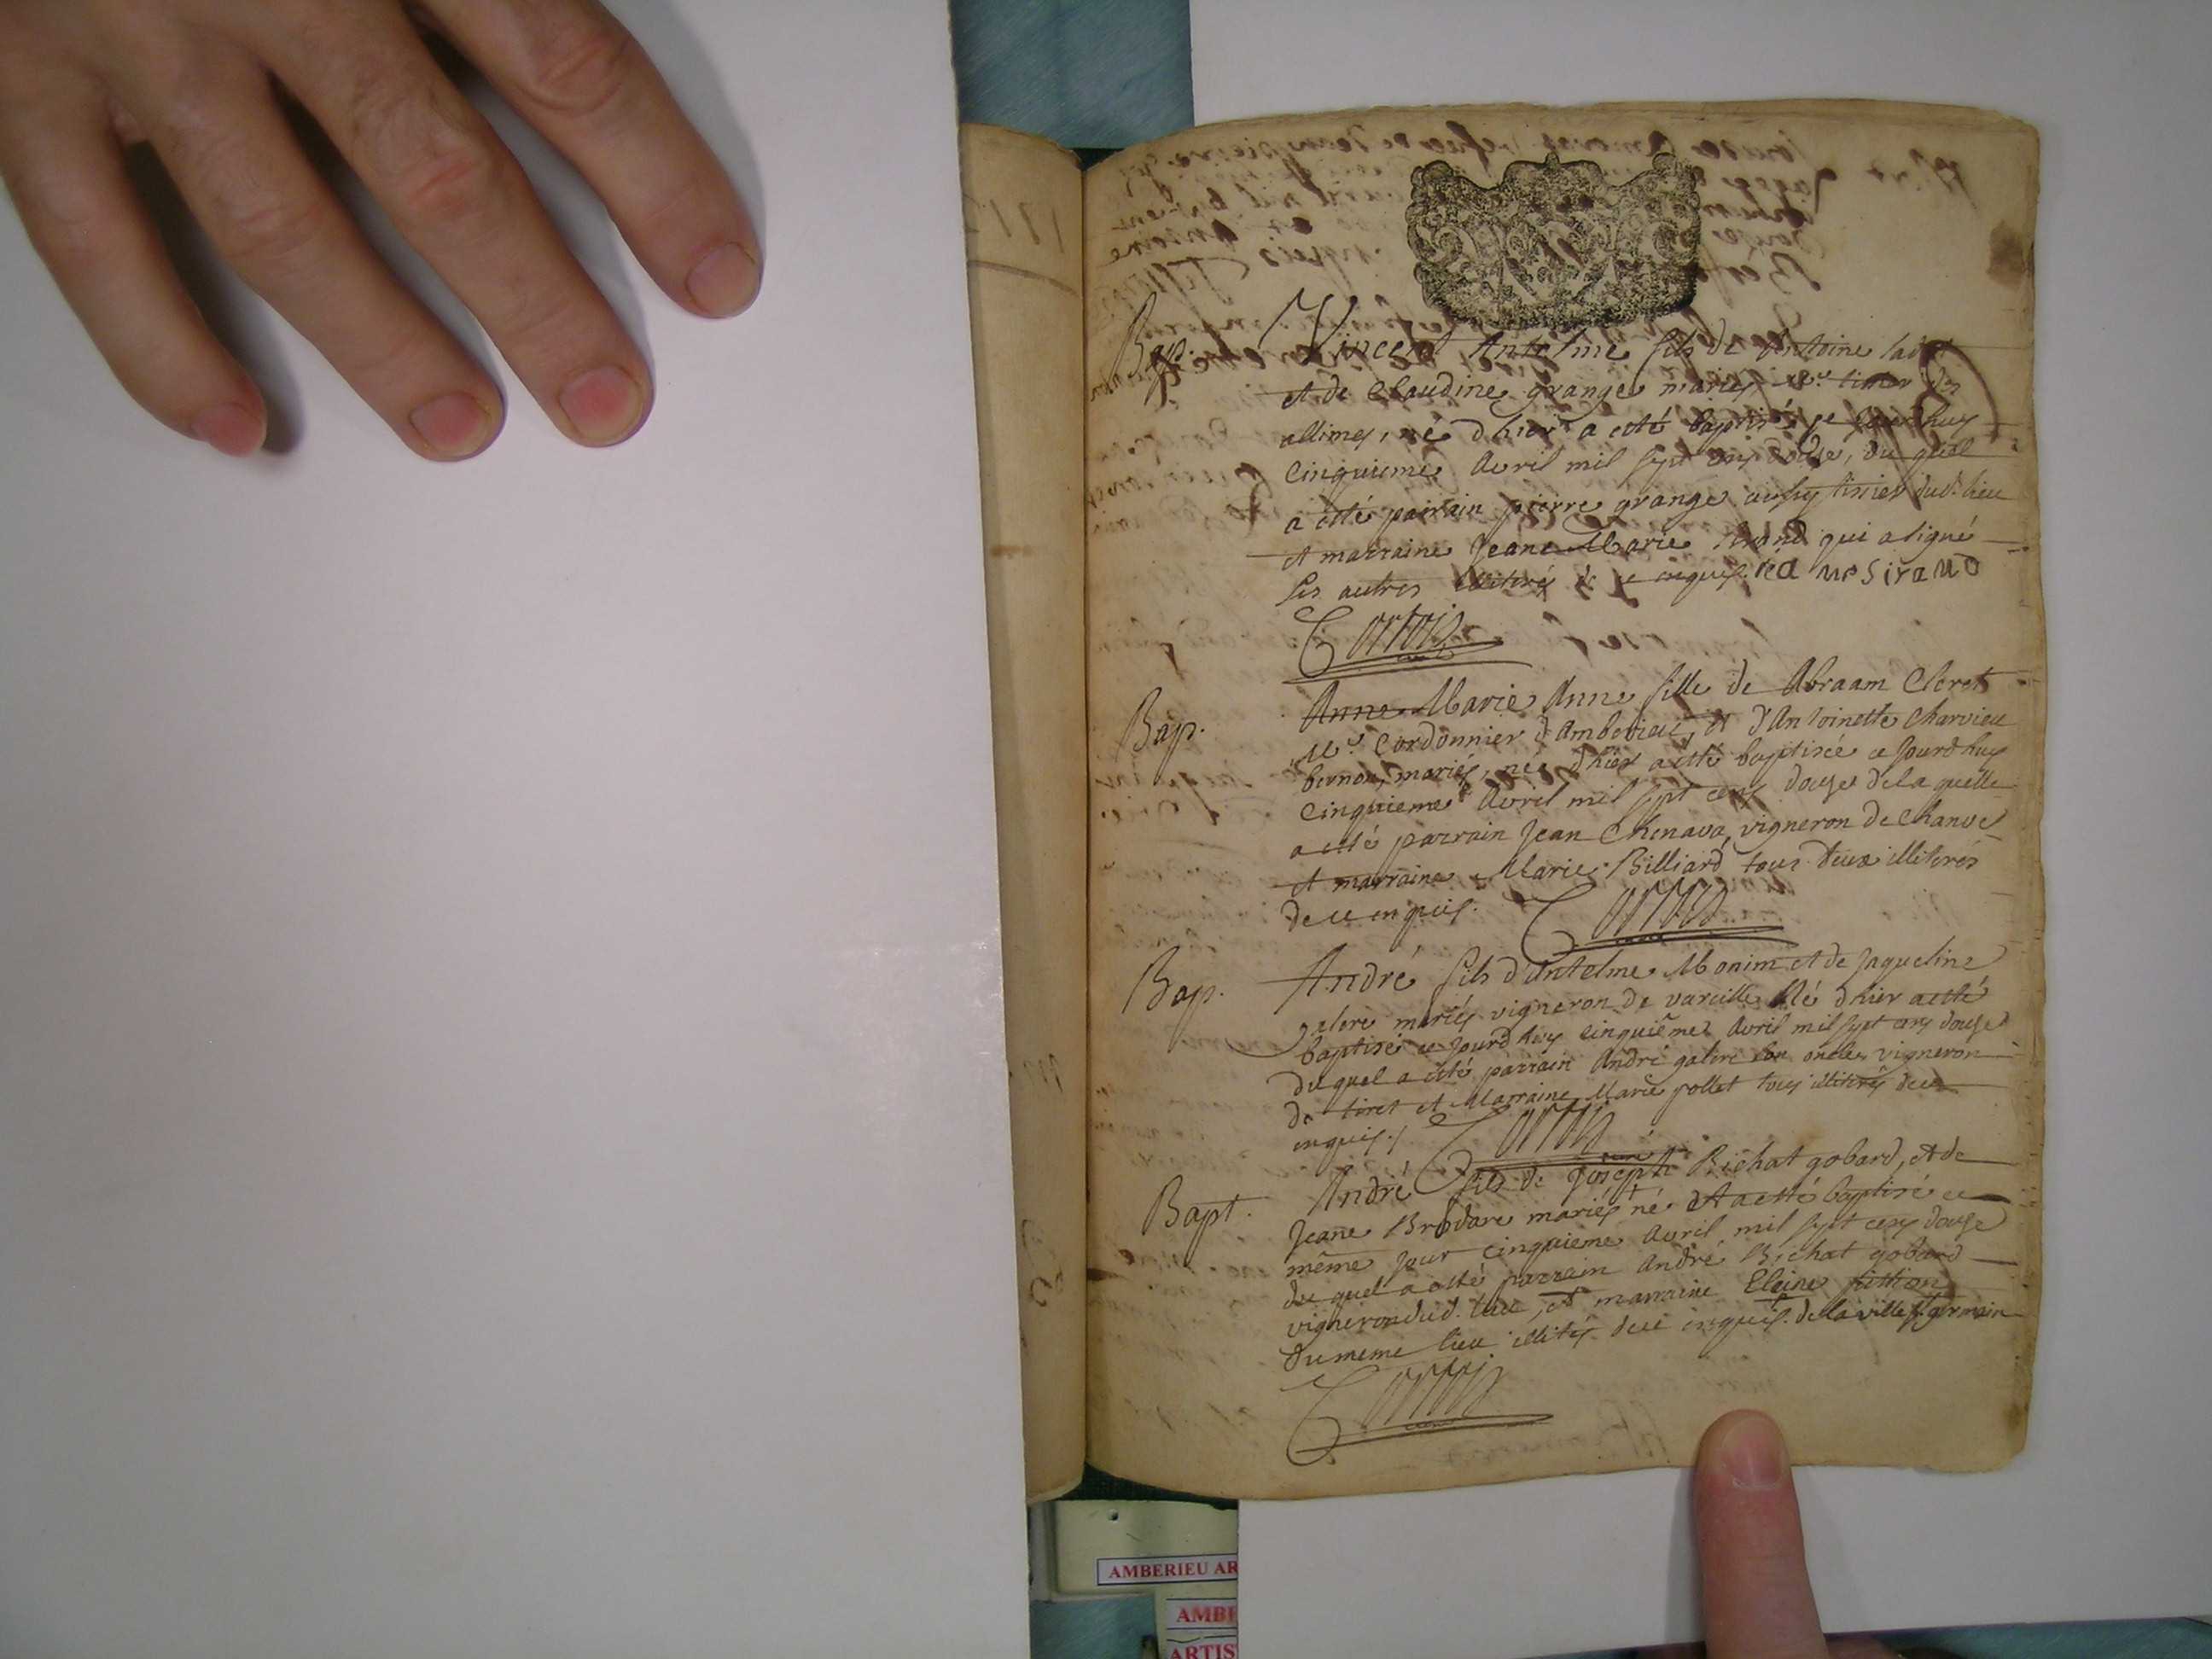 Bap. Vincent Antelme fils de Antoine
et de Claudine grange mariés
allimes, né d'hier a esté baptisé ce jourdhuy
Cinquieme Avril mil sept cens douse, du quel
a esté parrain pierre grange aussy tissier dud. lieu
et marraine Jeane Marie Sirand qui a signé
les autres illiterés de ce enquis. ieanesiraud
Bap. Anne Marie Anne fille de Abraam Cleret
Me. Cordonnier d'Amberieu, et d'Antoinette Charvieu
bernou, mariés, née d'hier a esté baptisée ce jourdhuy
Cinquieme Avril mil sept cens douse de la quelle
a esté parrain Jean Chenava vigneron de Chanve
et marraine Marie Billiard tous deux illiterés
de ce enquis.
Bap. André fils d'Antelme Monim et de Jaqueline
galere mariés vigneron de vareille Né d'hier a esté
baptisé ce jourd'huy cinquiême Avril mil sept cens douse
du quel a esté parrain André galere son oncle vigneron
de tiret et Marraine Marie pollet tous illiterés de ce
enquis./.
Bapt. André fils de Joseph Bichat gobard, et de
Jeane Brodare mariés né et a esté baptisé ce
même jour cinquieme Avril mil sept cens douse
du quel a esté parrain André Bichat gobard
vigneron dud. lieu, et marraine Eleine
du meme lieu illiterés de ce enquis. de la ville st. germain
AMBERIEU AR
AMBE
ARTIS